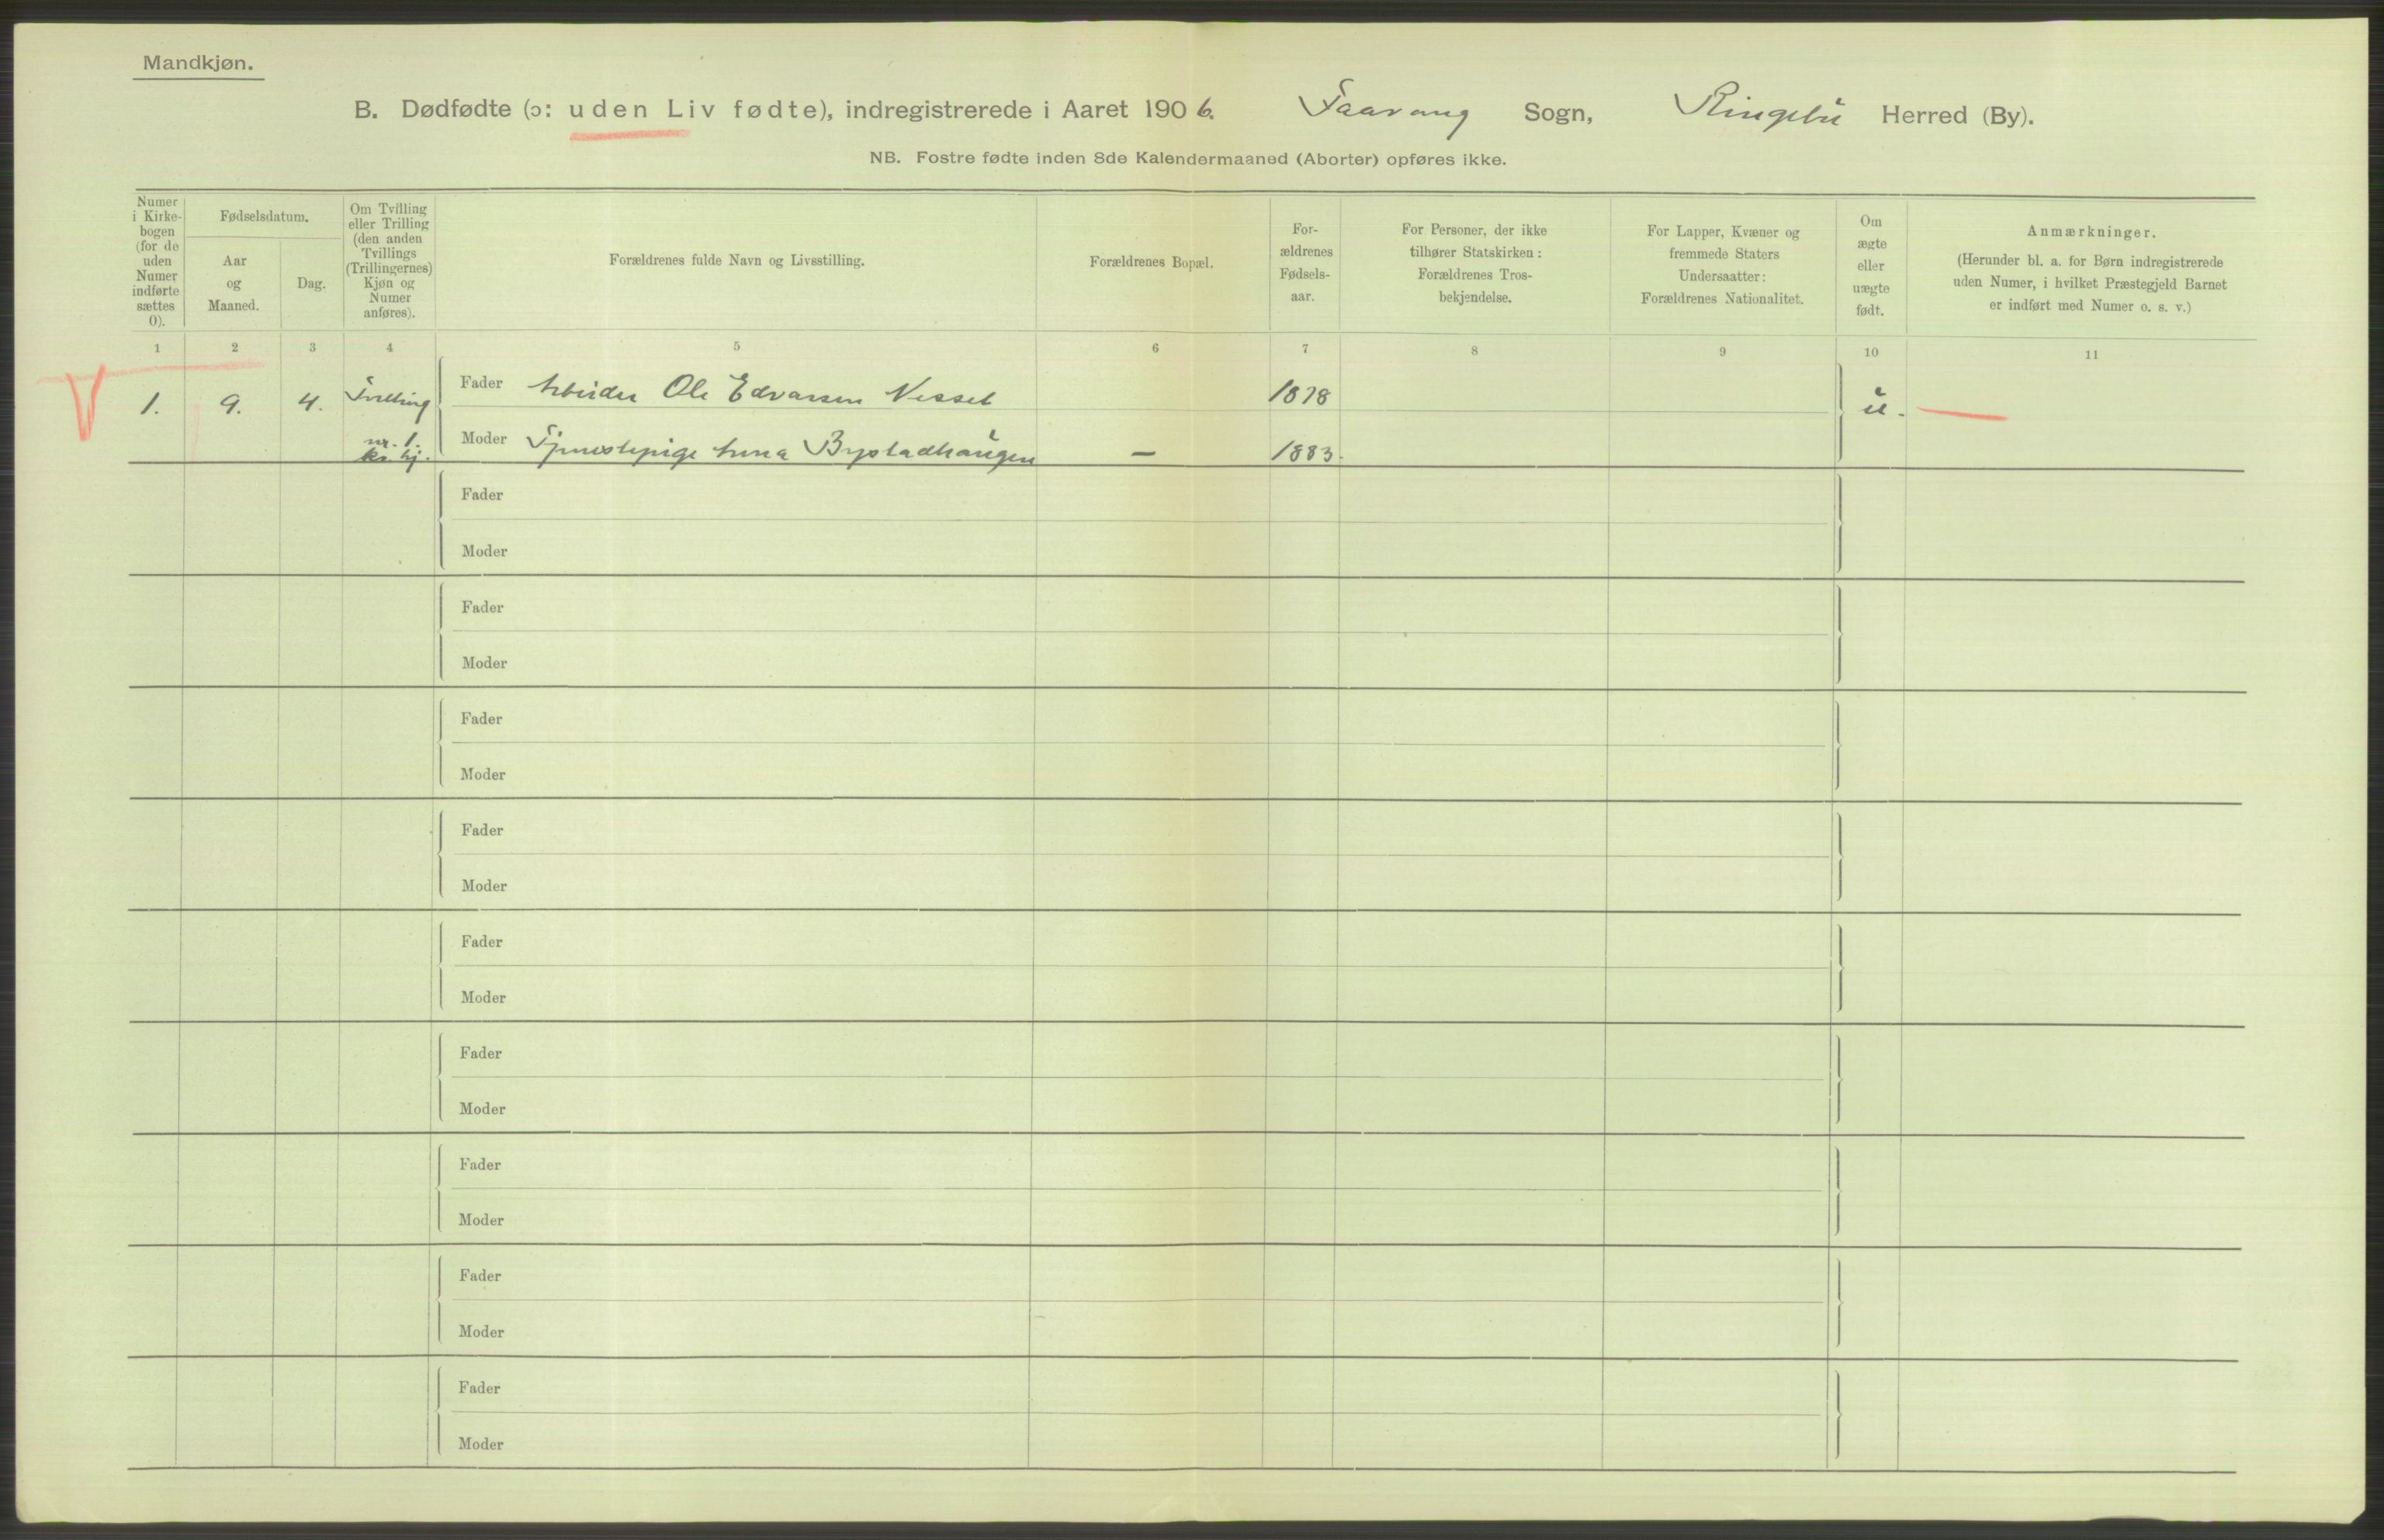 Mandkjøn.
B. Dødfødte (ɔ: uden Liv fødte), indregistrerede i Aaret 1906. Faavang Sogn, Ringebu Herred (By).
NB. Fostre fødte inden 8de Kalendermaaned (Aborter) opføres ikke.
Numer
i Kirke-
bogen
(for de
uden
Numer
indførte
sættes
0).
Fødselsdatum.
Aar
og
Maaned.
Dag.
Om Tvilling
eller Trilling
(den anden
Tvillings
(Trillingernes)
Kjøn og
Numer
anføres).
Forældrenes fulde Navn og Livsstilling.
Forældrenes Bopæl.
For-
ældrenes
Fødsels-
aar.
For Personer, der ikke
tilhører Statskirken:
Forældrenes Tros-
bekjendelse.
For Lapper, Kvæner og
fremmede Staters
Undersaatter:
Forældrenes Nationalitet.
Om
ægte
eller
uægte
født.
Anmærkninger.
(Herunder bl. a. for Børn indregistrerede
uden Numer, i hvilket Præstegjeld Barnet
er indført med Numer o. s. v.)
1 2 3 4 5 6 7 8 9 10 11
1. 9. 4. Tvilling Fader Arbeider Ole Edvarsen 1878 u.
nr. 1. Moder Tjenestepige Anna Bystadhaugen – 1883.
Fader
Moder
Fader
Moder
Fader
Moder
Fader
Moder
Fader
Moder
Fader
Moder
Fader
Moder
Fader
Moder
Fader
Moder